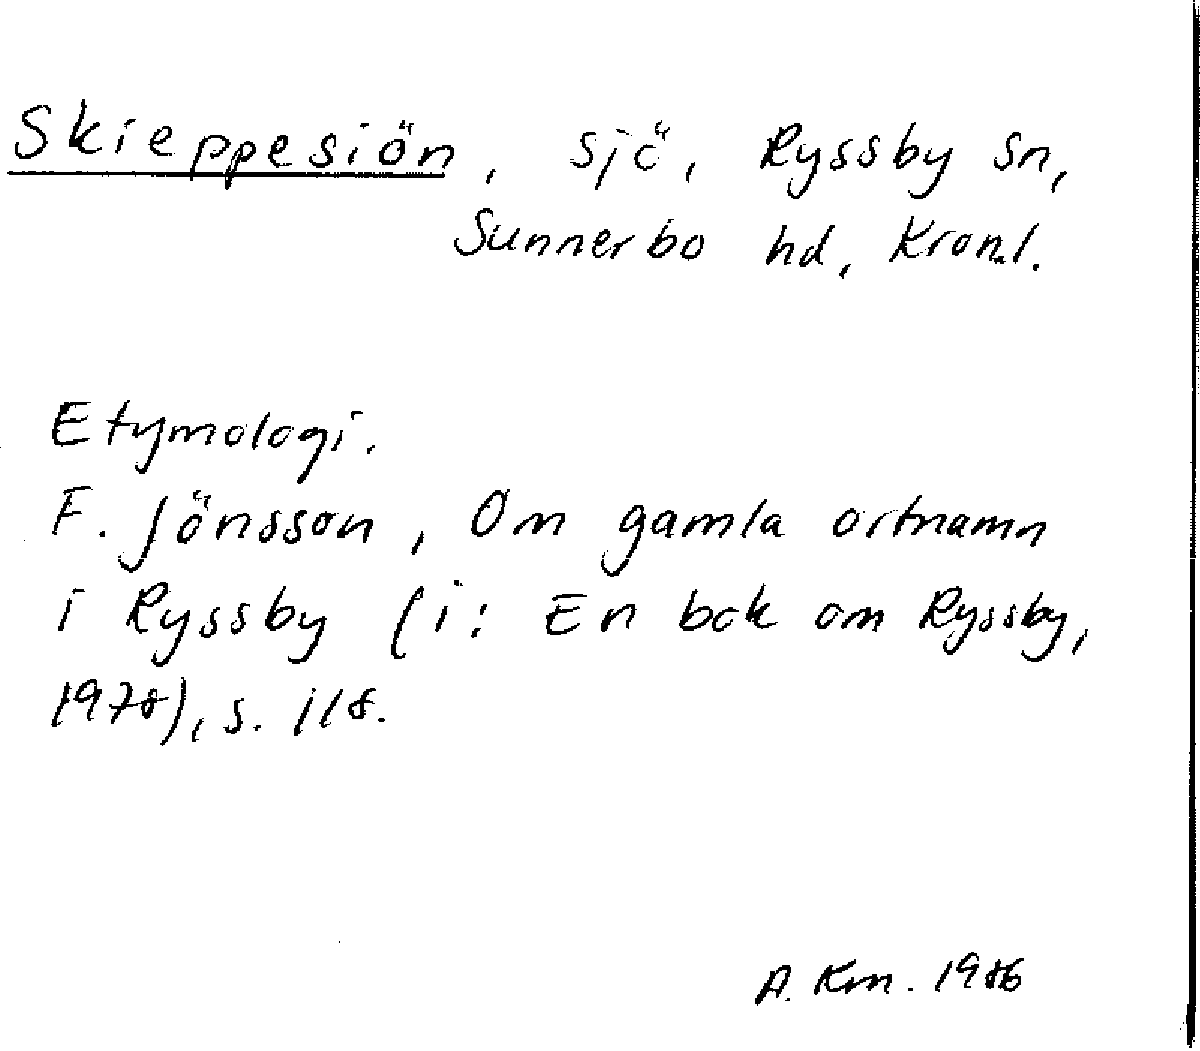 Skieppesiön, sjö, Ryssby sn,
Sunnerbo hd, Kron.l.
Etymologi.
F. Jönsson, Om gamla ortnamn
i Ryssby (i: En bok om Ryssby,
1978), s. 118.
A. Km. 1986